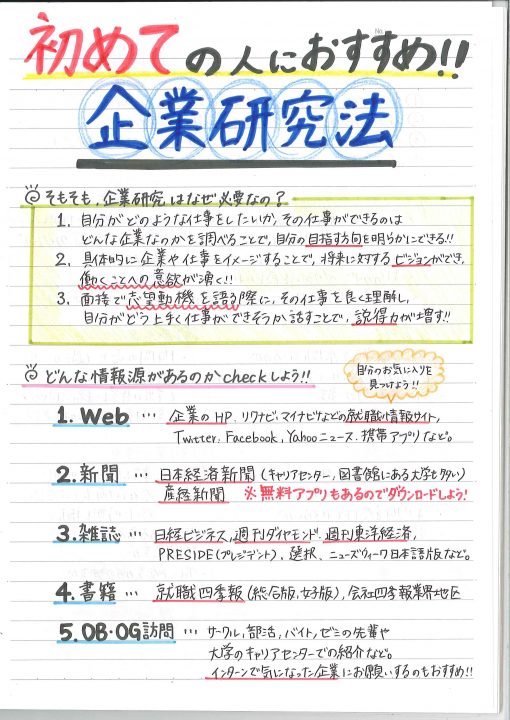 初めての人におすすめ!!
企業研究法
そもそも、企業研究はなぜ必要なの?
1. 自分がどのような仕事をしたいか、その仕事ができるのは
どんな企業なのかを調べることで、自分の目指す方向を明らかにできる!!
2. 具体的に企業や仕事をイメージすることで、将来に対するビジョンができ、
働くことへの意欲が湧く!!
3. 面接で志望動機を語る際に、その仕事を良く理解し、
自分がどう上手く仕事ができそうか話すことで、説得力が増す!!
どんな情報源があるのかcheckしよう!!
自分のお気に入りを
見つけよう!!
1. Web … 企業のHP、リクナビ、マイナビなどの就職情報サイト、
Twitter、Facebook、Yahooニュース、携帯アプリなど。
2. 新聞 … 日本経済新聞(キャリアセンター、図書館にある大学も多い)
産経新聞 ※無料アプリもあるのでダウンロードしよう!
3. 雑誌 … 日経ビジネス、週刊ダイヤモンド、週刊東洋経済、
PRESIDE(プレジデント)、選択、ニューズウィーク日本語版など。
4. 書籍 … 就職四季報(総合版、女子版)、会社四季報業界地図
5. OB・OG訪問 … サークル、部活、バイト、ゼミの先輩や
大学のキャリアセンターでの紹介など。
インターンで気になった企業にお願いするのもおすすめ!!